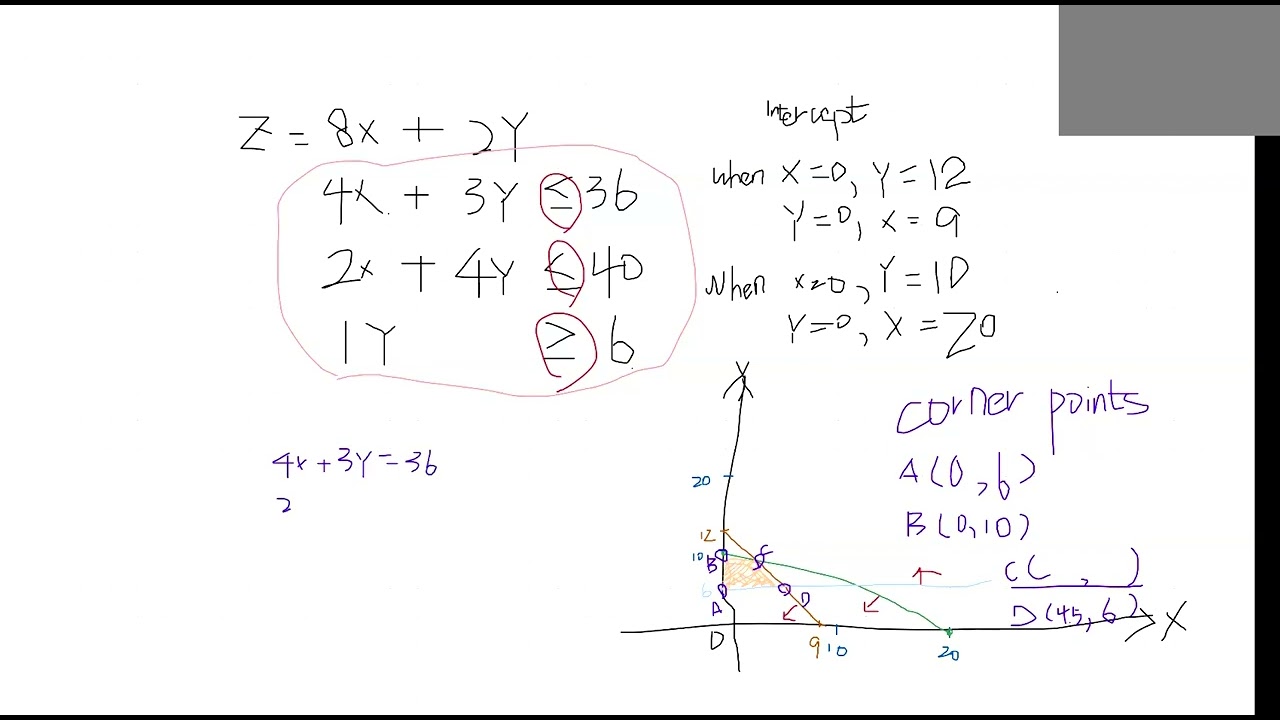 Z = 8x + 2Y
4x + 3Y ≤ 36
2x + 4Y ≤ 40
1Y ≥ 6
Intercept
when X=0, Y=12
Y=0, x=9
When x=0, Y=10
Y=0, X=20
4x+3Y=36
2
corner points
A(0,6)
B(0,10)
C( , )
D(4.5,6)
Y
20
12
10
B
C
6
A
D
0
9
10
20
X